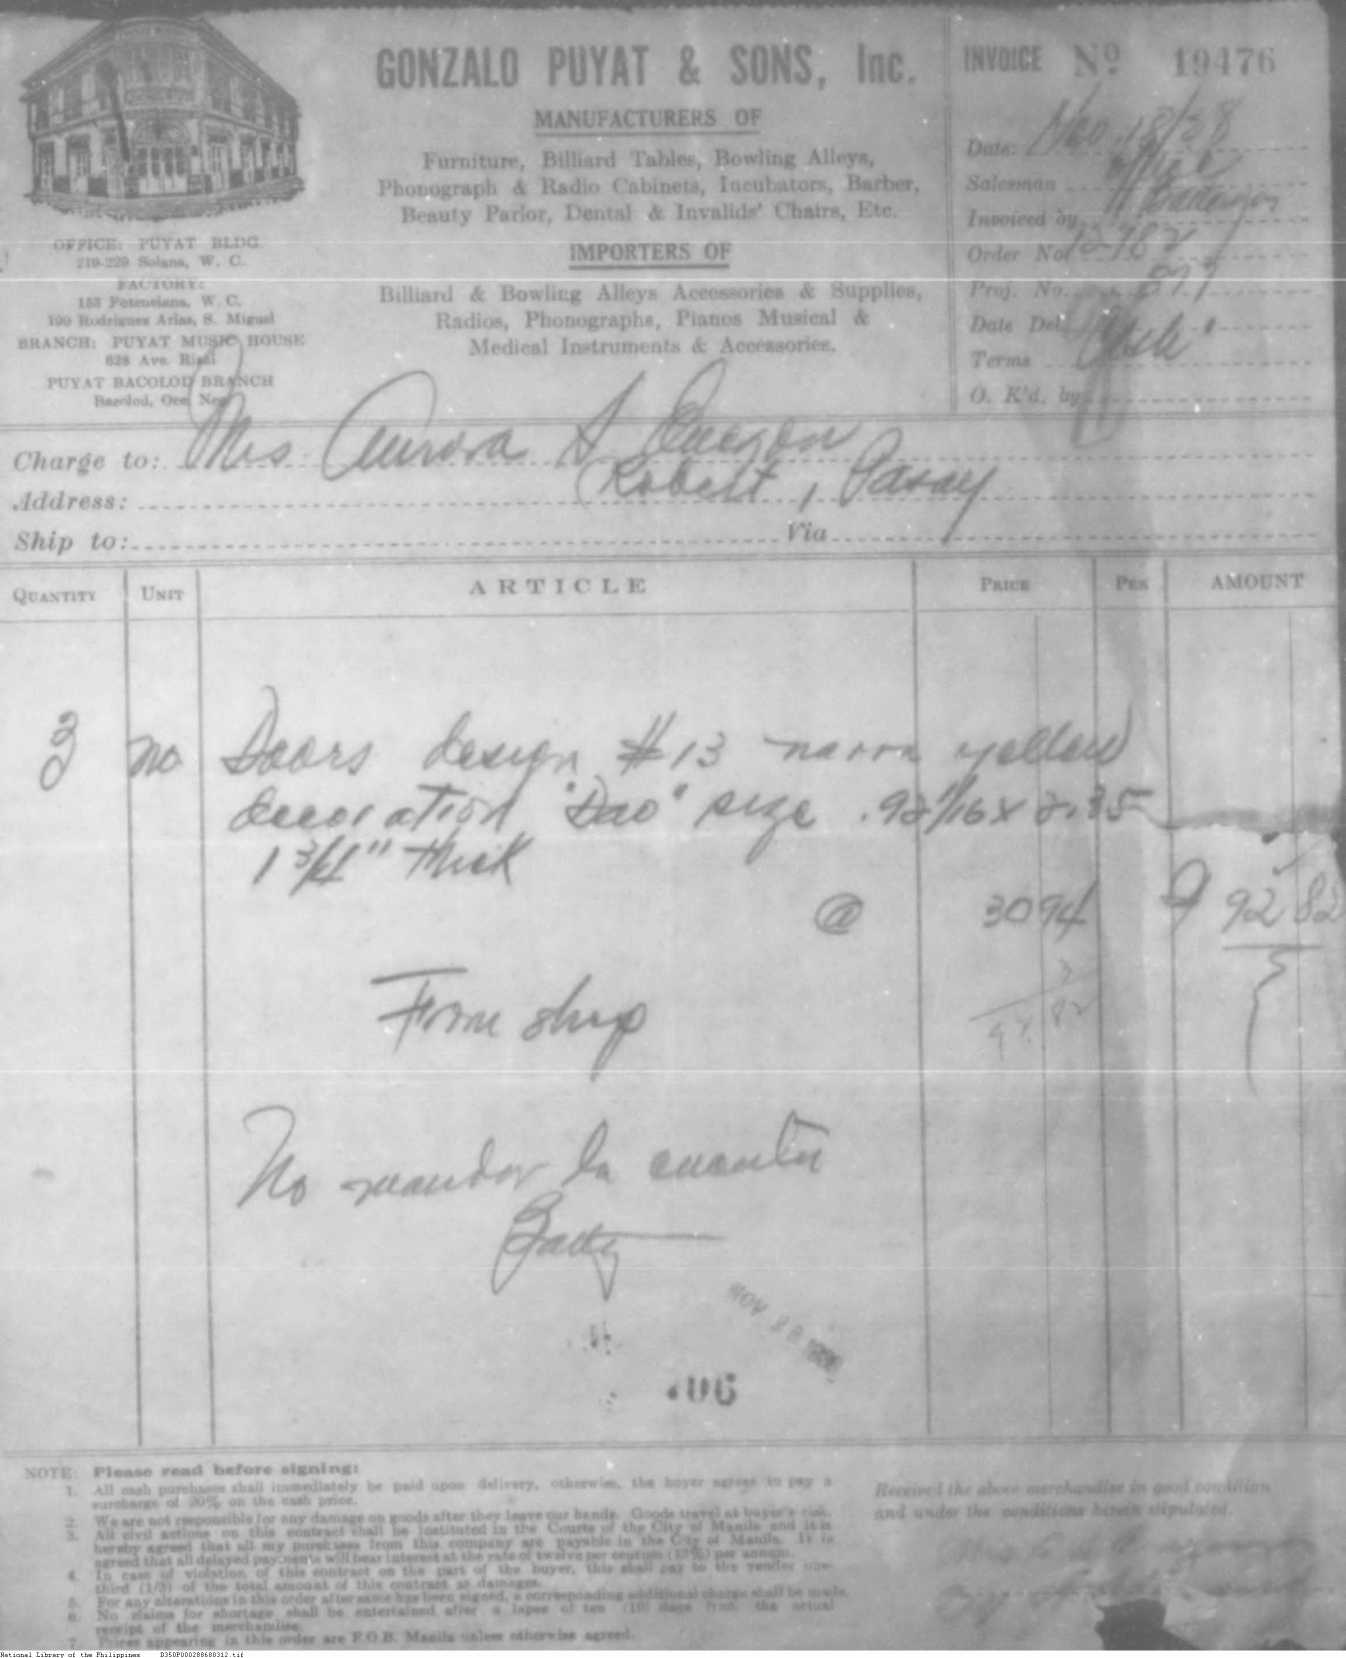 GONZALO PUYAT & SONS, Inc.
MANUFACTURERS OF
Furniture, Billiard Tables, Bowling Alleys,
Phonograph & Radio Cabinets, Incubators, Barber,
Beauty Parlor, Dental & Invalids' Chairs, Etc.
IMPORTERS OF
Billiard & Bowling Alleys Accessories & Supplies,
Radios, Phonographs, Pianos Musical &
Medical Instruments & Accessories.
OFFICE: PUYAT BLDG.
219-229 Solana, W. C.
FACTORY:
153 Potenciana, W. C.
190 Rodriguez Arias, S. Miguel
BRANCH: PUYAT MUSIC HOUSE
628 Ave. Rizal
PUYAT BACOLOD BRANCH
Bacolod, Occ. Neg.
INVOICE Nº 19476
Date: Nov. 18/38
Salesman
Invoiced by
Order No.
Proj. No.
Date Del.
Terms
O. K'd. by
Charge to: Mrs Aurora A Quezon
Address: Robert, Pasay
Ship to: Via
QUANTITY UNIT ARTICLE PRICE PER AMOUNT
3 no Doors design #13 narra yellow
decoration "Dao" size .92 1/16 x 2.35
1 3/4" thick
@ 30 94 92 82
3
92.82
From shop
No mandar la cuenta
NOV
706
NOTE: Please read before signing:
1. All cash purchases shall immediately be paid upon delivery, otherwise, the buyer agrees to pay a
surcharge of 20% on the cash price.
2. We are not responsible for any damage on goods after they leave our hands. Goods travel at buyer's risk.
3. All civil actions on this contract shall be instituted in the Courts of the City of Manila and it is
hereby agreed that all my purchases from this company are payable in the City of Manila. It is
agreed that all delayed payments will bear interest at the rate of twelve per centum (12%) per annum.
4. In case of violation of this contract on the part of the buyer, this shall pay to the vendor one-
third (1/3) of the total amount of this contract as damages.
5. For any alterations in this order after same has been signed, a corresponding additional charge shall be made.
6. No claims for shortage shall be entertained after a lapse of ten (10) days from the actual
receipt of the merchandise.
7. Prices appearing in this order are F.O.B. Manila unless otherwise agreed.
Received the above merchandise in good condition
and under the conditions herein stipulated.
National Library of the Philippines D350P000288680312.tif